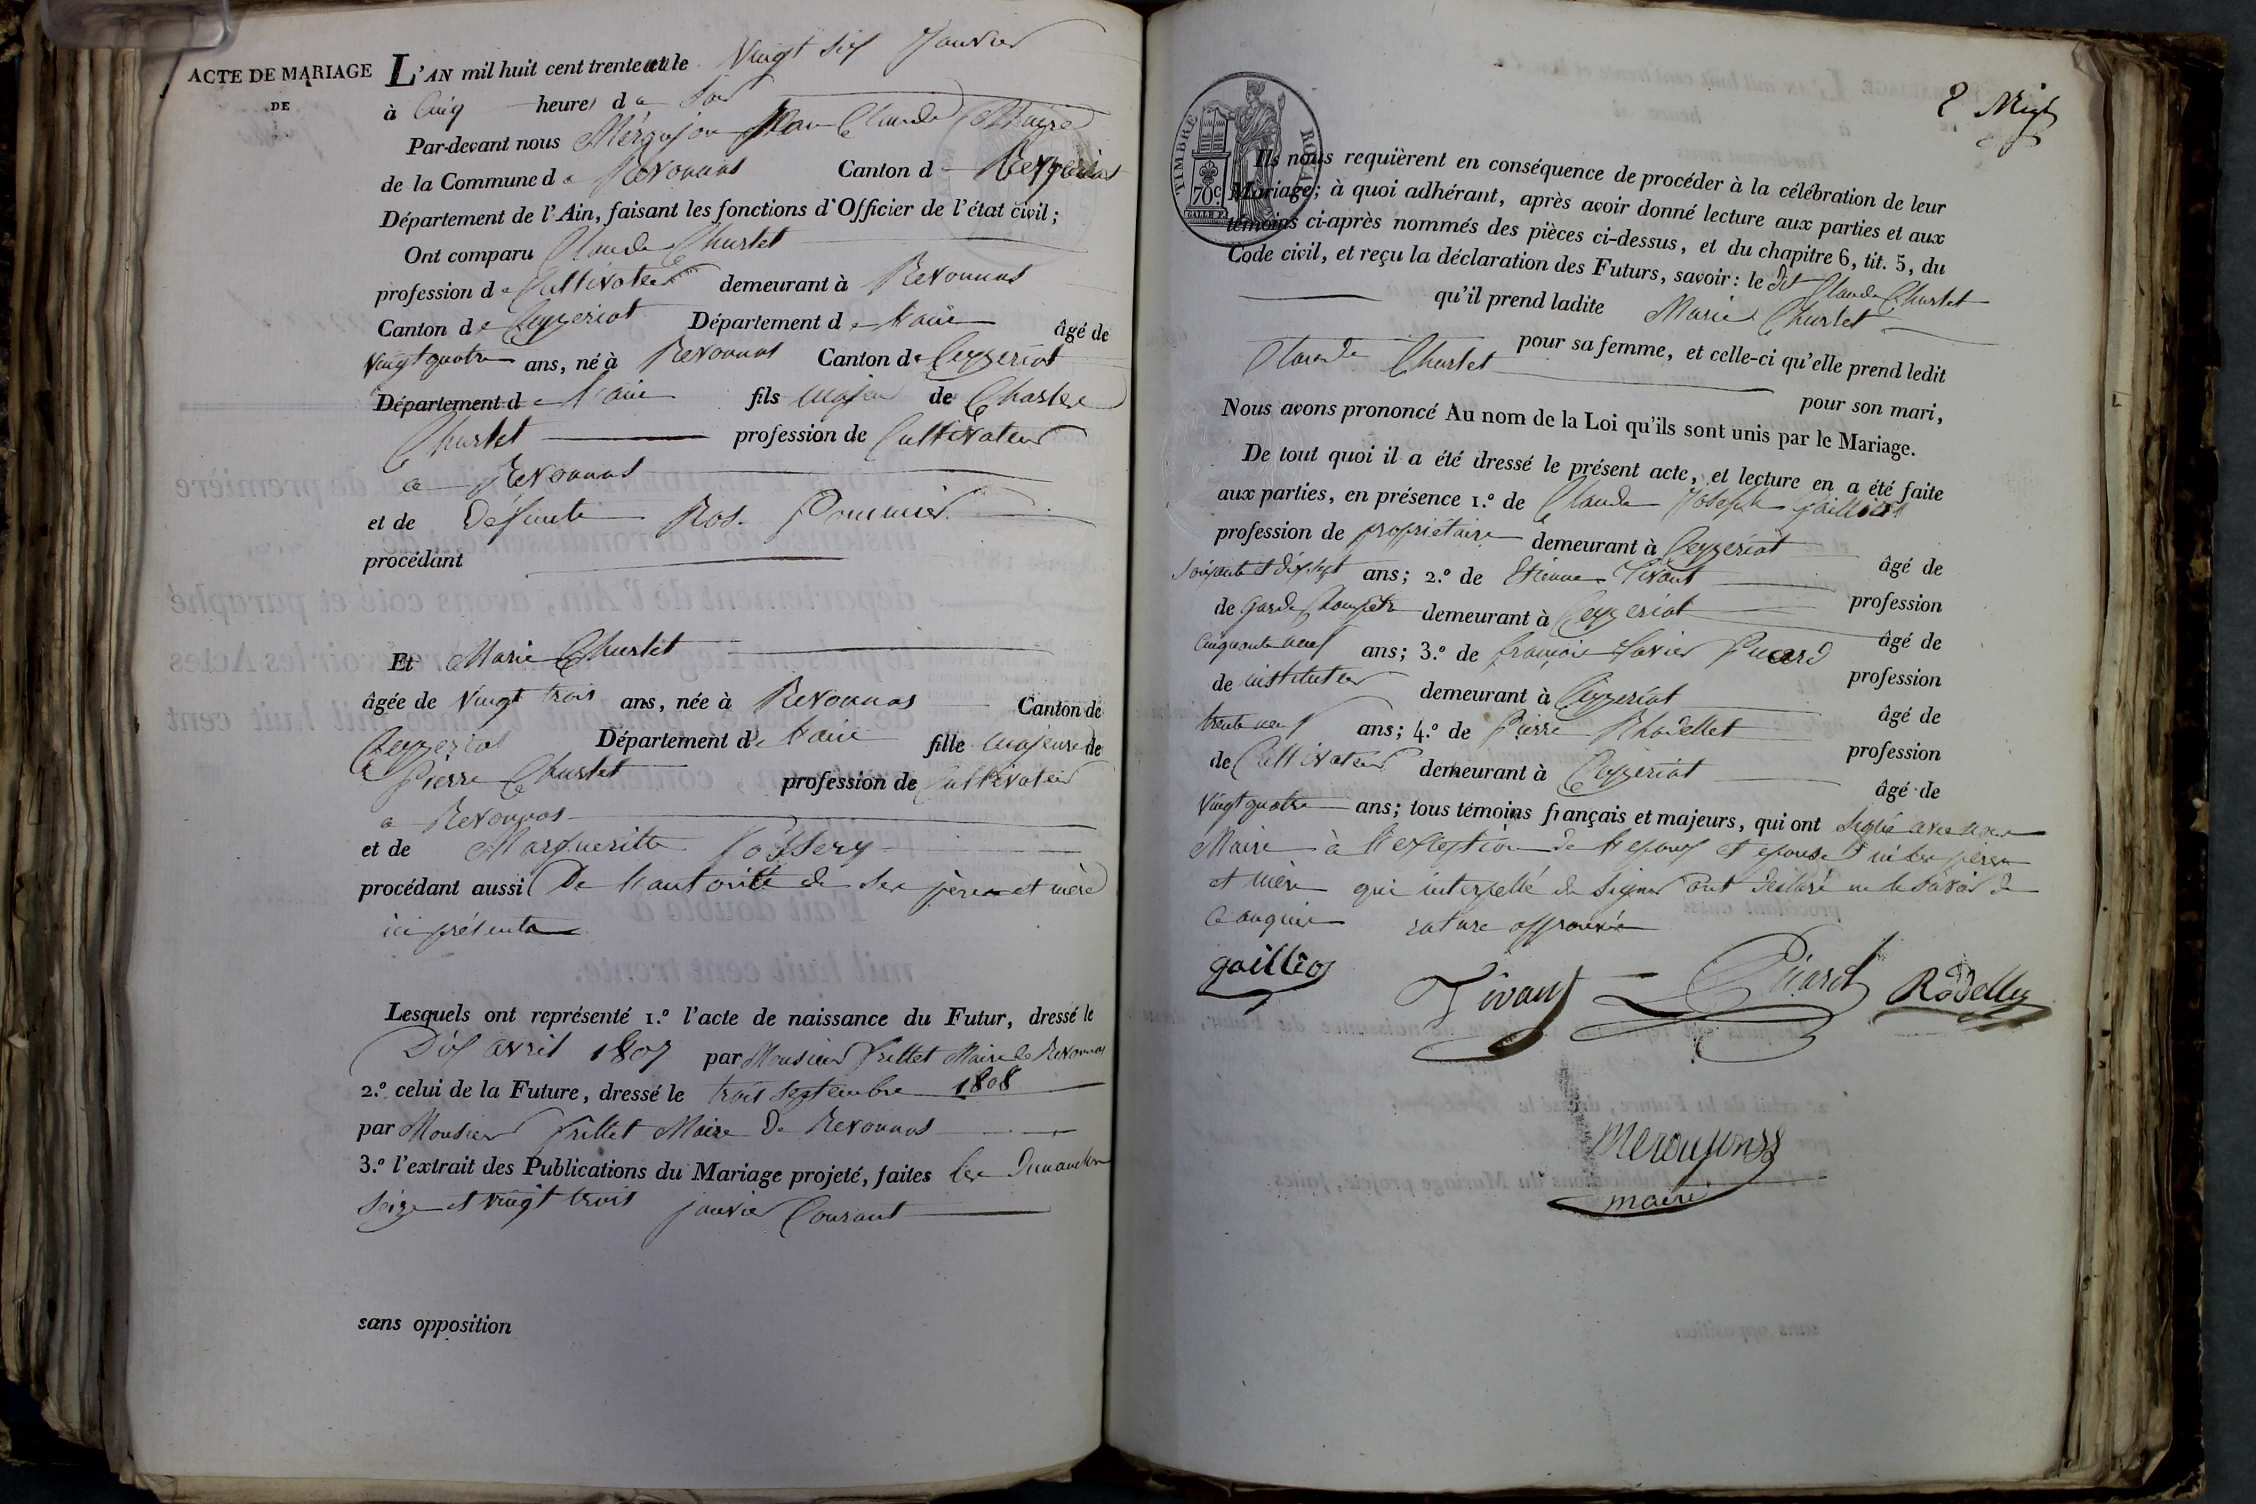 ACTE DE MARIAGE
DE
L'AN mil huit cent trente un le Vingt six Janvier
à Cinq heures du Soir
Par-devant nous Jean Claude Maire
de la Commune de Revonnas Canton de Ceyzeriat
Département de l'Ain, faisant les fonctions d'Officier de l'état civil;
Ont comparu Claude Churlet
profession de Cultivateur demeurant à Revonnas
Canton de Ceyzeriat Département de l'ain âgé de
Vingt quatre ans, né à Revonnas Canton de Ceyzeriat
Département de l'ain fils majeur de Charles
Churlet profession de Cultivateur
a Revonnas
et de défunte Rose Pommier
procédant
Et Marie Churlet
âgée de Vingt trois ans, née à Revonnas Canton de
Ceyzeriat Département de l'ain fille majeure de
Pierre Churlet profession de Cultivateur
a Revonnas
et de Marguerite
procédant aussi De l'autorité de ses père et mère
ici présents
Lesquels ont représenté 1.º l'acte de naissance du Futur, dressé le
Dix avril 1807 par Monsieur frillet Maire de Revonnas
2.º celui de la Future, dressé le trois septembre 1808
par Monsieur frillet Maire De Revonnas
3.º l'extrait des Publications du Mariage projeté, faites les Dimanches
seize et vingt trois janvier Courant
sans opposition
TIMBRE ROYAL
70c.
Ils nous requièrent en conséquence de procéder à la célébration de leur
Mariage; à quoi adhérant, après avoir donné lecture aux parties et aux
témoins ci-après nommés des pièces ci-dessus, et du chapitre 6, tit. 5, du
Code civil, et reçu la déclaration des Futurs, savoir: le dit Claude Churlet
qu'il prend ladite Marie Churlet
pour sa femme, et celle-ci qu'elle prend ledit
Claude Churlet pour son mari,
Nous avons prononcé Au nom de la Loi qu'ils sont unis par le Mariage.
De tout quoi il a été dressé le présent acte, et lecture en a été faite
aux parties, en présence 1.º de Claude Joseph
profession de propriétaire demeurant à Ceyzeriat âgé de
soixante et dix sept ans; 2.º de Etienne Tivant profession
de garde Champetre demeurant à Ceyzeriat âgé de
cinquante neuf ans; 3.º de françois Xavier Picard profession
de instituteur demeurant à Ceyzeriat âgé de
trente neuf ans; 4.º de Pierre Rhodellet profession
de Cultivateur demeurant à Ceyzeriat âgé de
Vingt quatre ans; tous témoins français et majeurs, qui ont signé avec nous
Maire à l'exception de l'epoux et epouse père
et mère qui interpellé de signer ont declaré ne le savoir de
ce enquis rature approuvée
Tivant Picard
maire